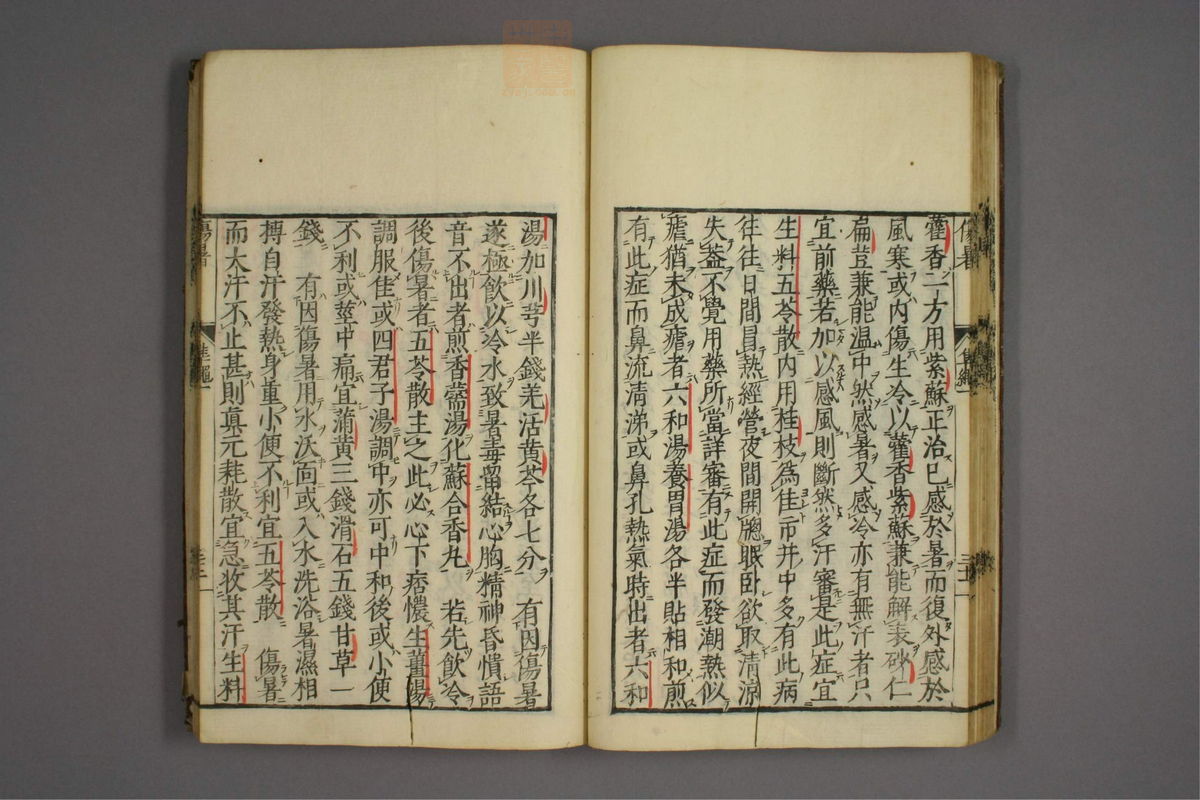 藿香二方用紫蘇正治已感於暑而復外感於
風寒或内傷生冷以藿香紫蘇兼能解表砂仁
扁荳兼能温中然感暑又感冷亦有無汗者只
宜前藥若加以感風則斷然多汗審是此症宜
生料五苓散内用桂枝為佳市井中多有此病
往往日間冒熱經營夜間開牕眠卧欲取清涼
失葢不覺用藥所當詳審有此症而發潮熱似
瘧猶未成瘧者六和湯養胃湯各半貼相和煎
有此症而鼻流清涕或鼻孔熱氣時出者六和
湯加川芎半錢羌活黄芩各七分 有因傷暑
遂極飲以冷水致暑毒留結心胸精神昏憒語
音不出者煎香薷湯化蘇合香丸 若先飲冷
後傷暑者五苓散主之此必心下痞憹生薑湯
調服佳或四君子湯調中亦可中和後或小便
不利或莖中痛宜蒲黄三錢滑石五錢甘草一
錢 有因傷暑用水沃面或入水洗浴暑濕相
搏自汗發熱身重小便不利宜五苓散 傷暑
而大汗不止甚則真元耗散宜急收其汗生料
傷暑